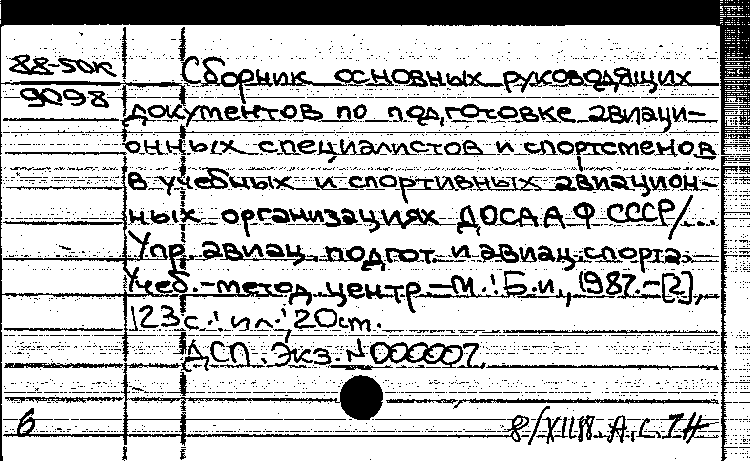 88-50к
9098
Сборник основных руководящих
документов по подготовке авиаци-
онных специалистов и спортсменов
в учебных и спортивных авиацион-
ных организациях ДОСААФ СССР/...
Упр. авиац. подгот. и авиац. спорта.
Учеб.-метод. центр.-М.: Б.и., 1987.-[2],
123с.: ил.; 20см.
ДСП. Экз. N000007.
6